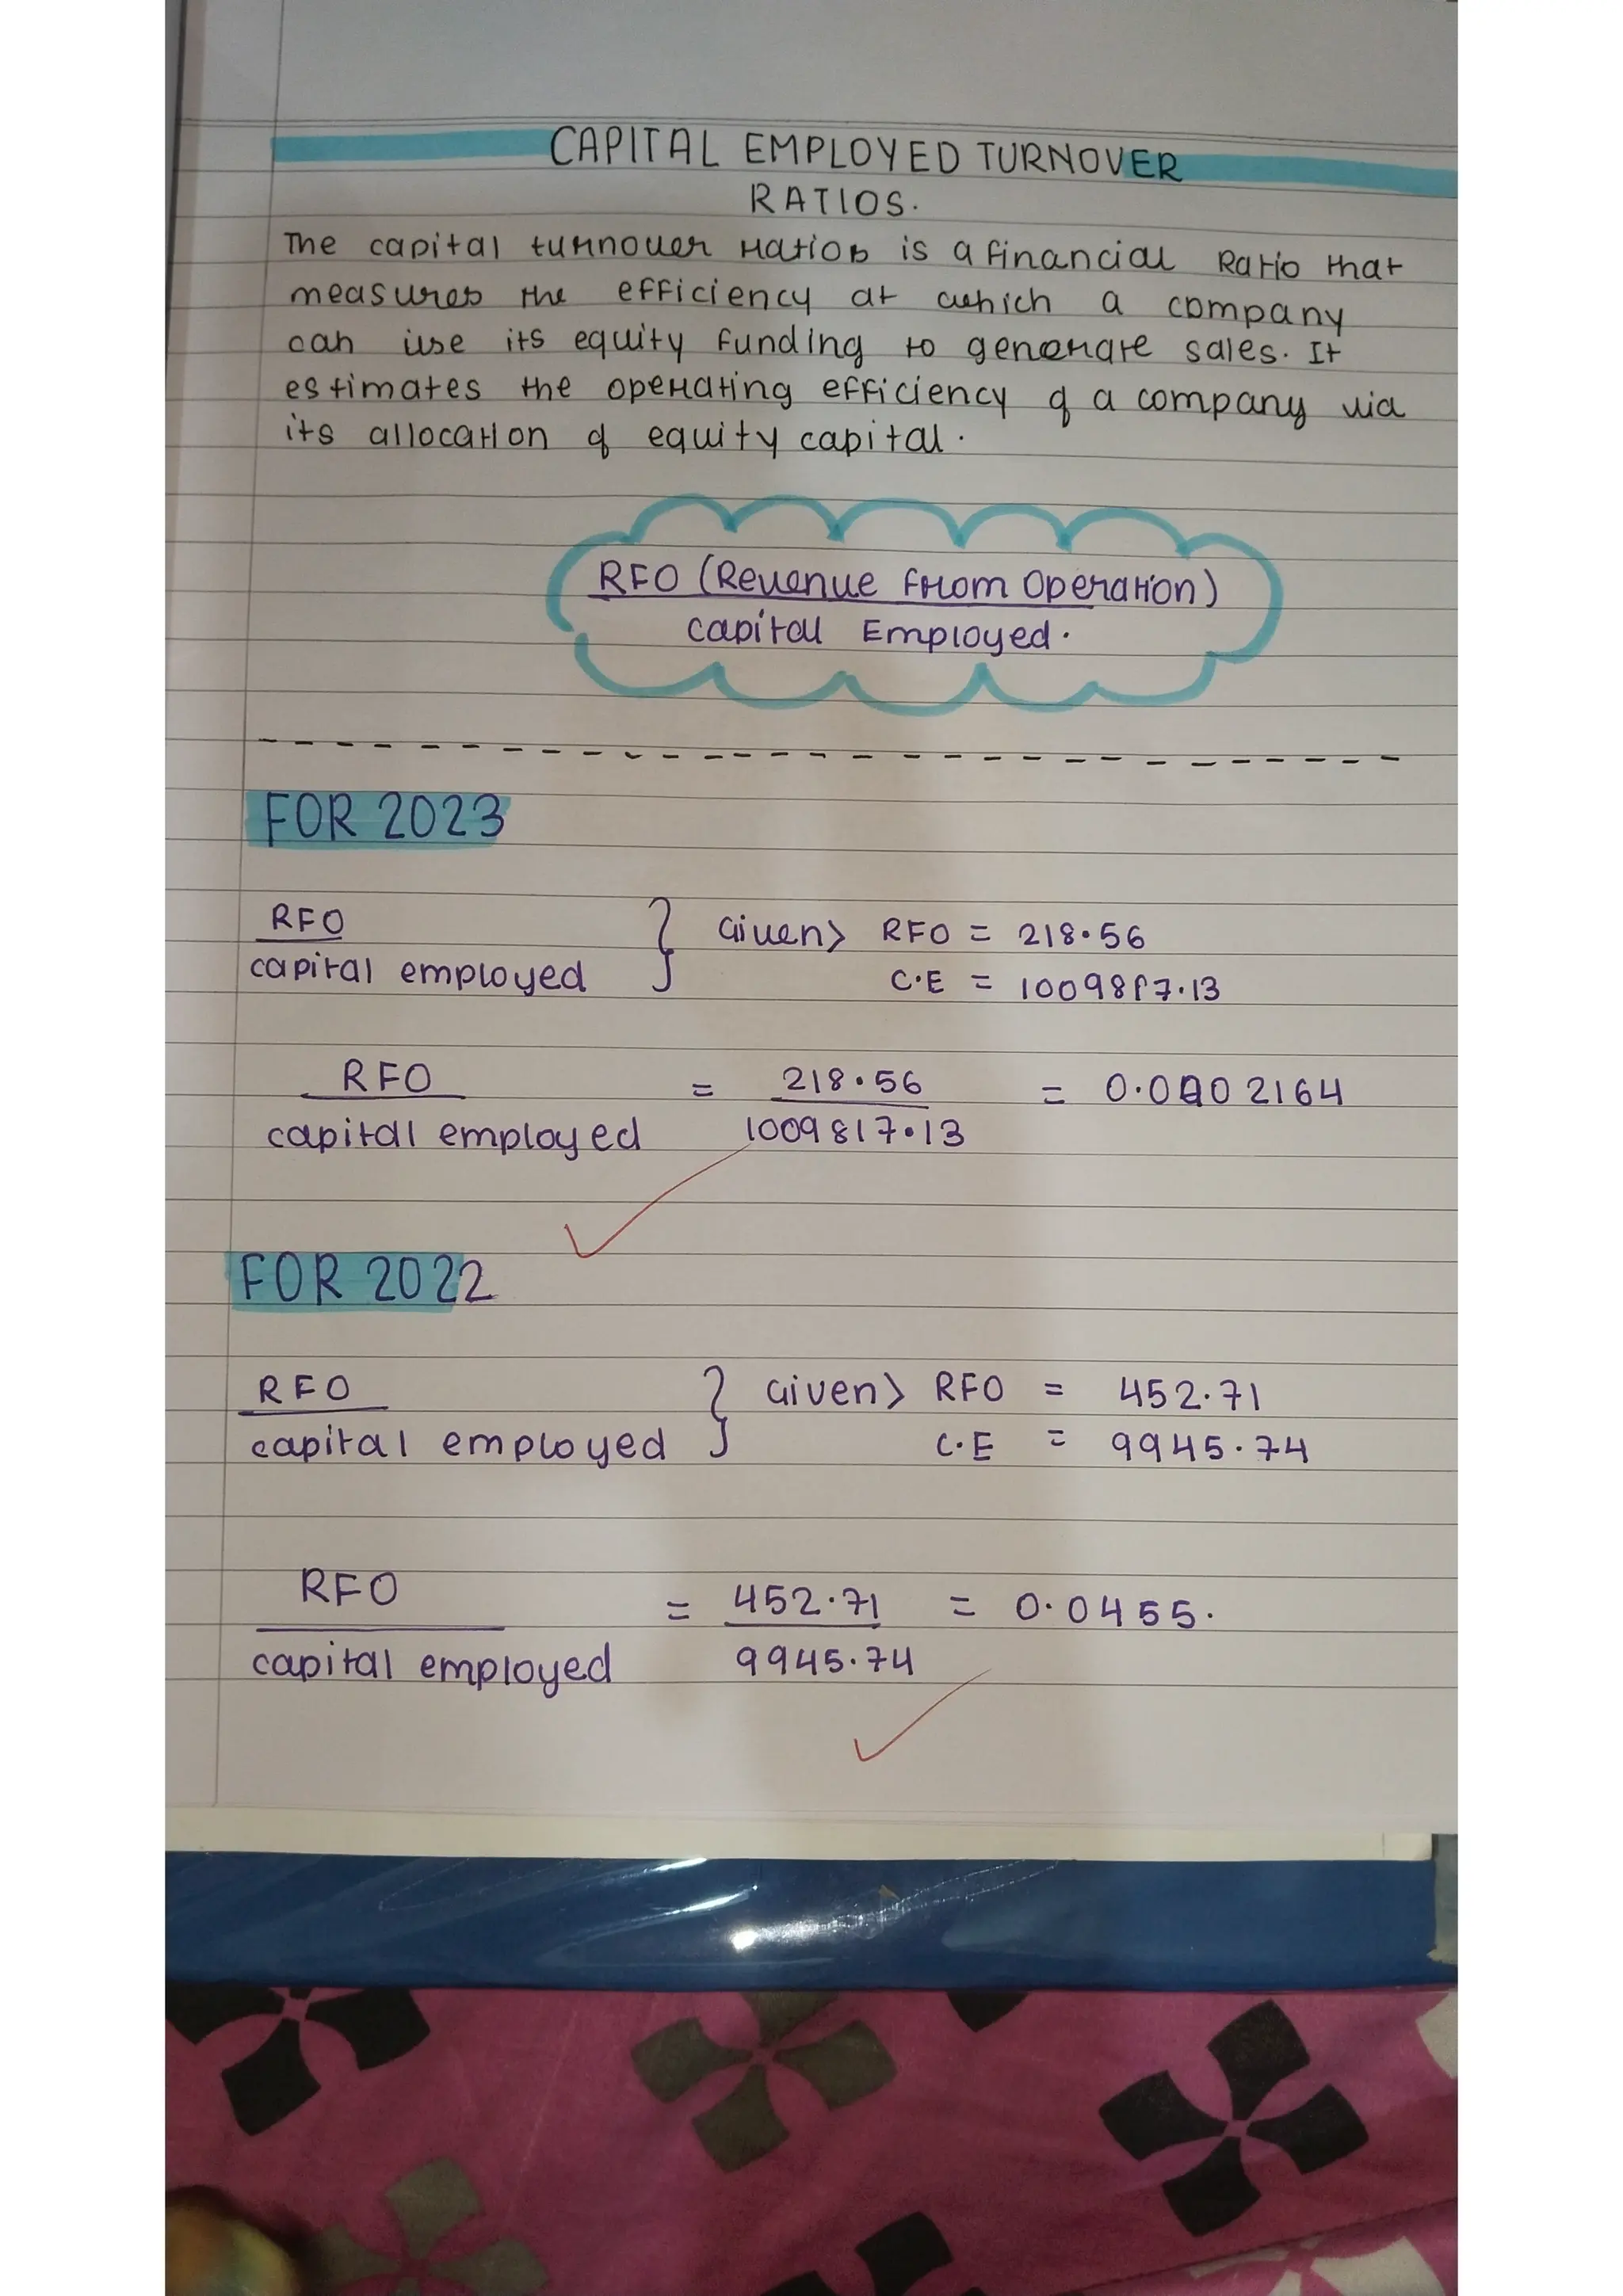 CAPITAL EMPLOYED TURNOVER
RATIOS.
The capital turnover ratios is a financial Ratio that
measures the efficiency at which a company
can use its equity funding to generate sales. It
estimates the operating efficiency of a company via
its allocation of equity capital.
RFO (Revenue from Operation)
Capital Employed.
FOR 2023
RFO
capital employed
Given> RFO = 218.56
C.E = 1009817.13
RFO
capital employed
= 218.56
1009817.13
= 0.0002164
FOR 2022
RFO
capital employed
Given> RFO = 452.71
C.E = 9945.74
RFO
capital employed
= 452.71
9945.74
= 0.0455.